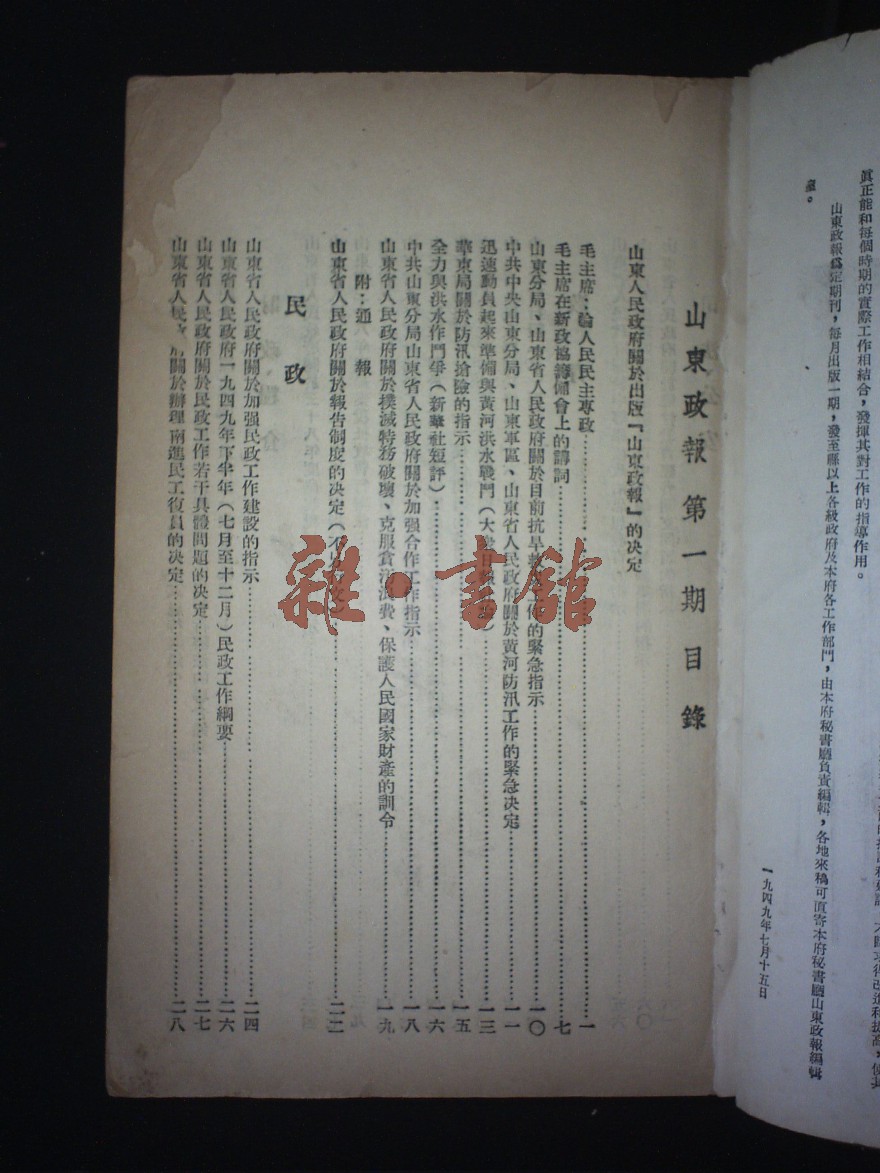 真正能和每個時期的實際工作相結合，發揮其對工作的指導作用。
山東政報爲定期刊，每月出版一期，發至縣以上各級政府及本府各工作部門，由本府秘書廳負責編輯，各地來稿可直寄本府秘書廳山東政報編輯
室。
一九四九年七月十五日
山東政報第一期目錄
山東人民政府關於出版『山東政報』的决定
毛主席：論人民民主專政……一
毛主席在新政協籌備會上的講詞……七
山東分局、山東省人民政府關於目前抗旱救災工作的緊急指示……一〇
中共中央山東分局、山東軍區、山東省人民政府關於黃河防汛工作的緊急决定……一一
迅速動員起來準備與黃河洪水戰鬥（大衆日報社論）……一三
華東局關於防汛搶險的指示……一五
全力與洪水作鬥爭（新華社短評）……一六
中共山東分局山東省人民政府關於加强合作工作指示……一八
山東省人民政府關於撲滅特務破壞、克服貪污浪費、保護人民國家財產的訓令……一九
附：通報
山東省人民政府關於報告制度的决定……二二
民政
山東省人民政府關於加强民政工作建設的指示……二四
山東省人民政府一九四九年下半年（七月至十二月）民政工作綱要……二六
山東省人民政府關於民政工作若干具體問題的决定……二七
山東省人民政府關於辦理南進民工復員的决定……二八
雜·書館